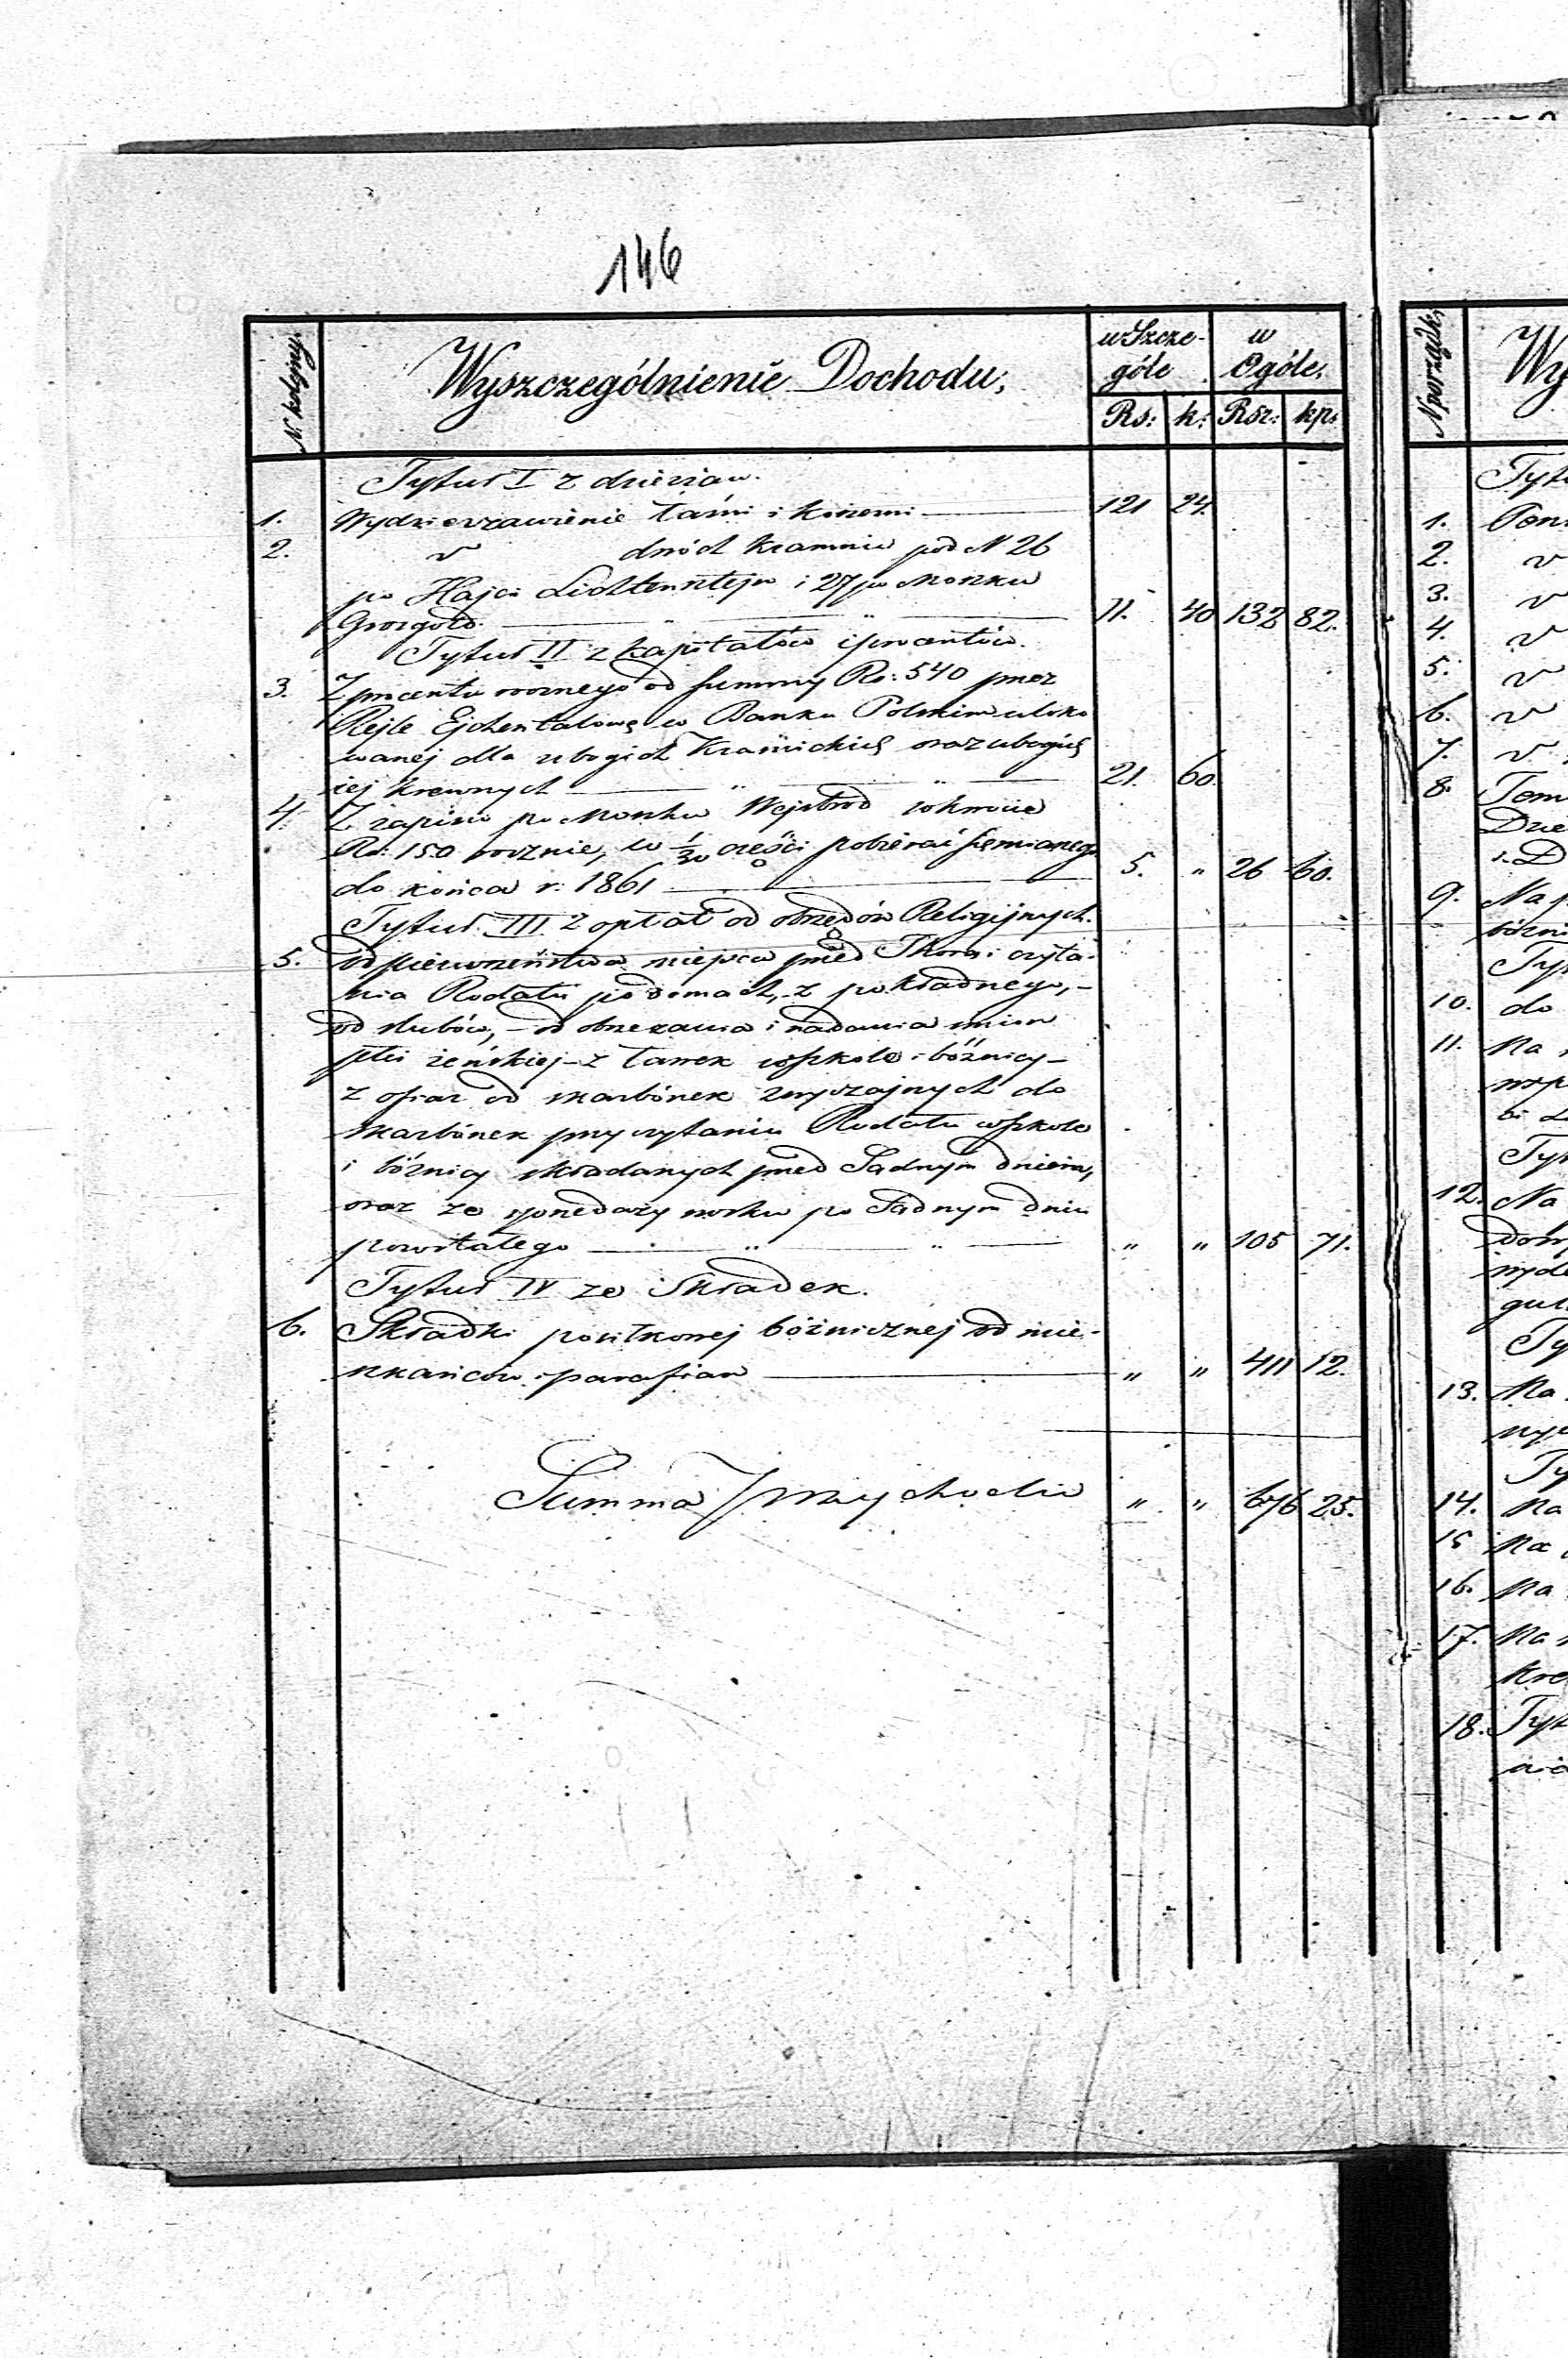 146
N. kolejny.
Wyszczególnienie Dochodu.
w Szcze-
góle
w
Ogóle.
Rs: k: Rsr: kp.
Tytuł I z dzierżaw.
1. Wydzierżawienie łaźni i 121 24.
2. " dwóch kramnic pod N 26
po Lichtensztejn i 27 po Moszku
11. 40 132 82.
Tytuł II z kapitałów i procentów.
3. Z procentu rocznego od summy Rs: 540 przez
Rejle Ejchentalową w Banku Polskim uloko
wanej dla ubogich oraz ubogich
jej krewnych " 21. 60.
4. Z zapisu po Moszku w kwocie
Rs. 150 rocznie, w 1/30 części pobierać się mianego
do końca r. 1861 5. " 26 60.
Tytuł III z opłat od obrzędów Religijnych.
5. od pierwszeństwa miejsca przed Thorą i czyta-
nia Rodału po domach, z pokładnego, -
od ślubów, - od obrzezania i nadania imion
płci żeńskiej - z ławek w szkole i bóżnicy -
z ofiar od skarbonek zwyczajnych do
skarbonek przy czytaniu Rodału w szkole
i bóżnicy składanych przed Sądnym dniem,
oraz ze sprzedaży wosku po Sądnym dniu
pozostałego " " " " 105 71.
Tytuł IV ze Składek.
6. Składki posiłkowej bóżnicznej od mie-
szkańców i parafian " " 411 12.
Summa Przychodu " " 676 25.
N porządk.
Wy
Tyt
1.
2. "
3. "
4. "
5. "
6. "
7. "
8. Tem
Dzie
i D
9. Na p
bóżni
Tyt
10. do
11. Na
Tyt
12. Na
Ty
13. Na
Ty
14. Na
15 Na
16. Na
17. Na
18. Tyt